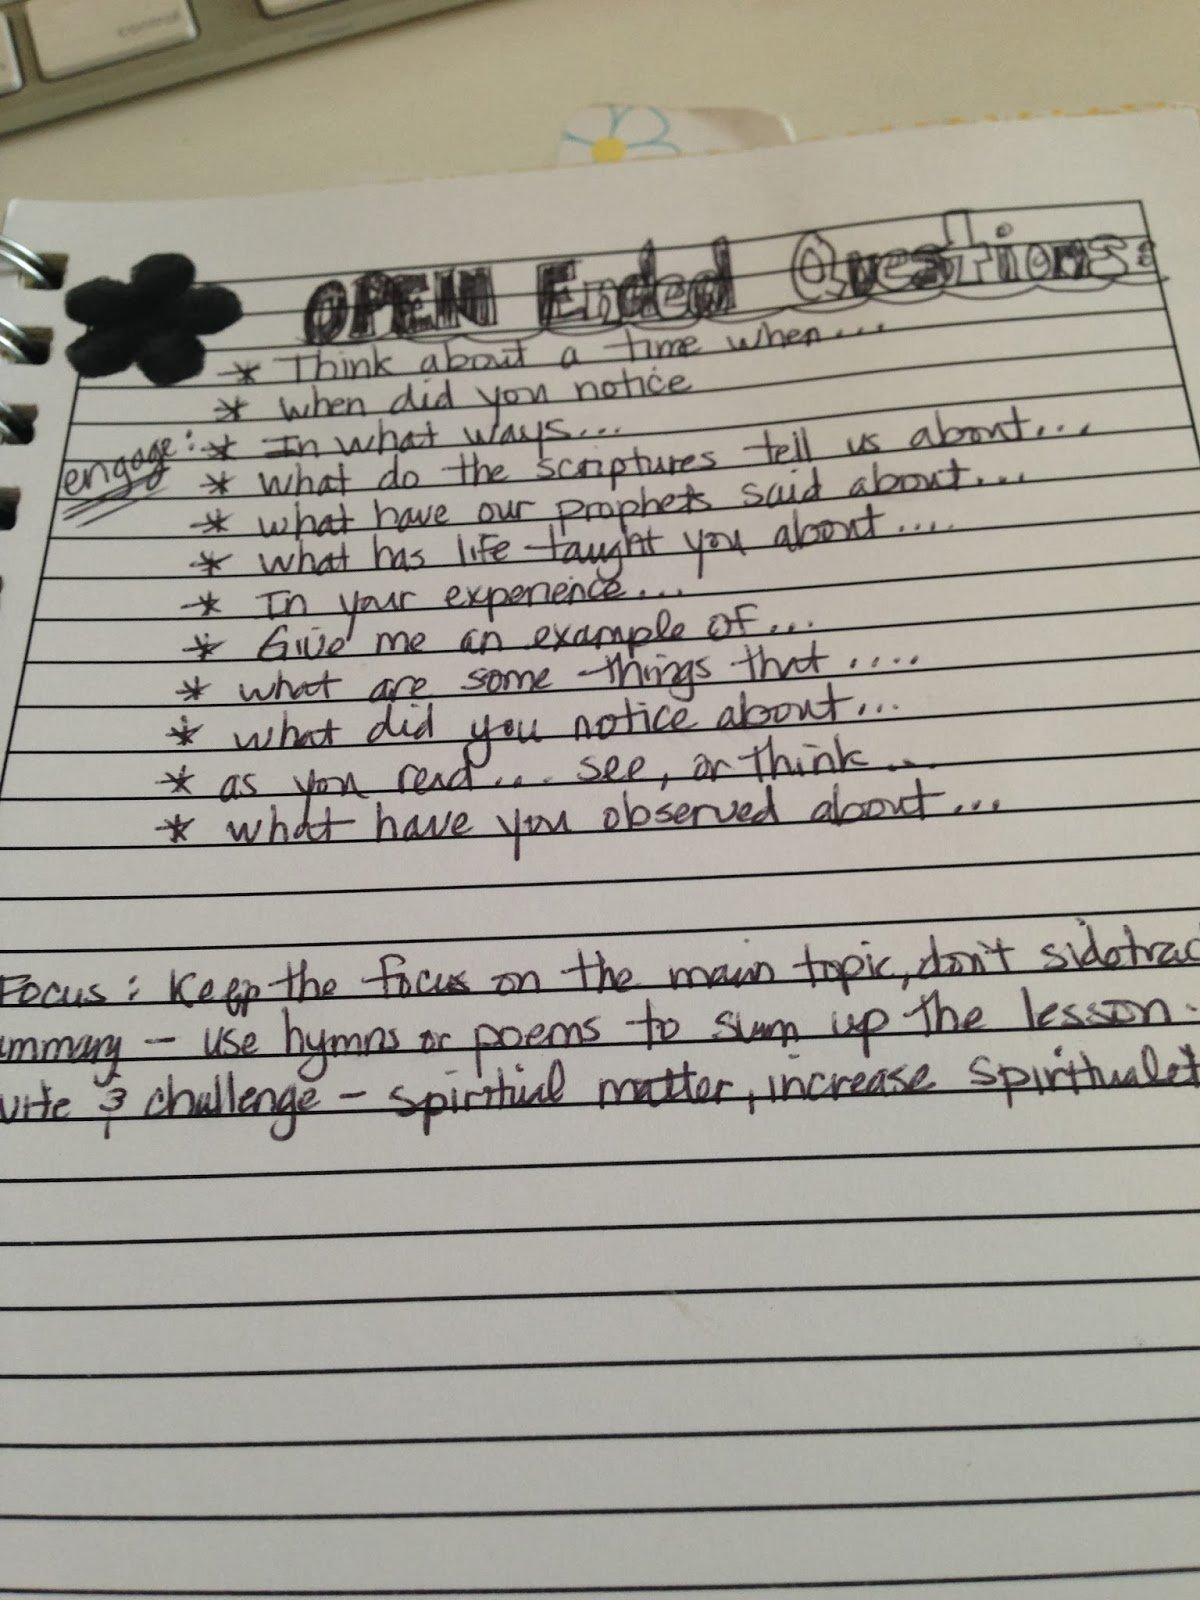 control
OPEN Ended Questions:
* Think about a time when...
* when did you notice
engage: * In what ways...
* what do the scriptures tell us about...
* what have our prophets said about...
* what has life taught you about....
* In your experience...
* Give me an example of...
* what are some things that ....
* what did you notice about...
* as you read... see, or think...
* what have you observed about...
Focus: Keep the focus on the main topic, don't sidetrac
ummary - use hymns or poems to sum up the lesson.
vite & challenge - spiritual matter, increase spiritualet